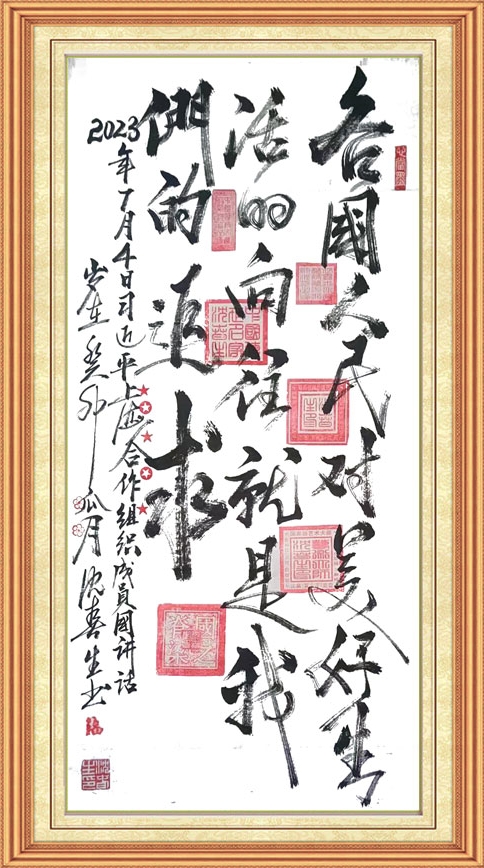 各國人民对美好生
活的向往就是我
們的追求
2023年7月4日习近平上合合作组织成员國讲话
岁在癸卯瓜月沈喜生书